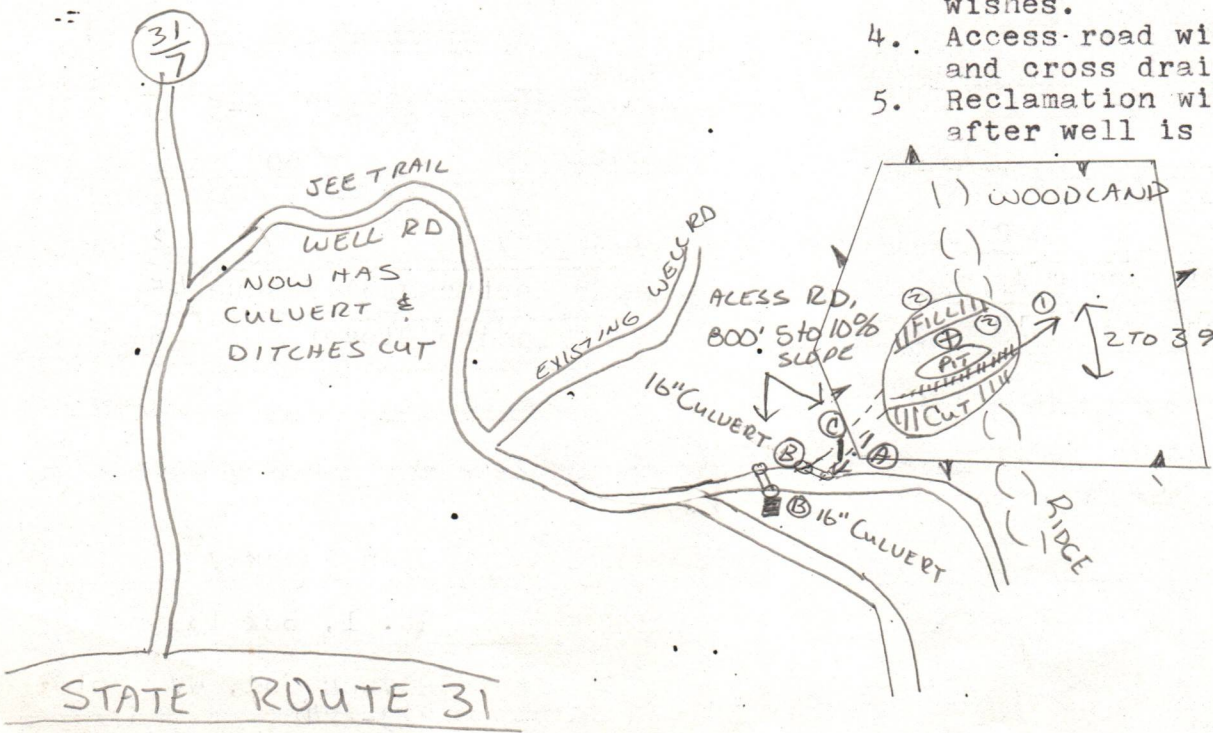 wishes.
4. Access road wi
and cross drai
5. Reclamation wi
after well is
31/7
JEE TRAIL
WELL RD
NOW HAS
CULVERT &
DITCHES CUT
EXISTING WELL RD
ACESS RD,
800' 5 to 10%
SLOPE
16" CULVERT
B
C
A
B 16" CULVERT
WOODLAND
2
FILL
2
1
PIT
CUT
2 TO 3%
RIDGE
STATE ROUTE 31